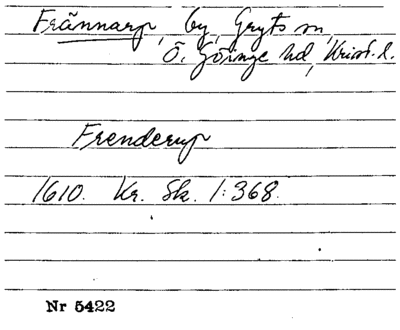 Frännarp, by, Gryts sn,
Ö. Göinge hd, Krist. l.
Frenderup
1610. Kr. Sk. 1:368.
Nr 5422